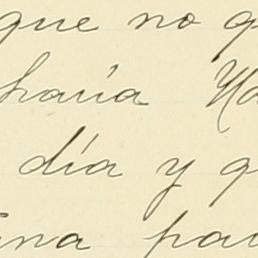 que no q
haría Ha
día y q
ina pa